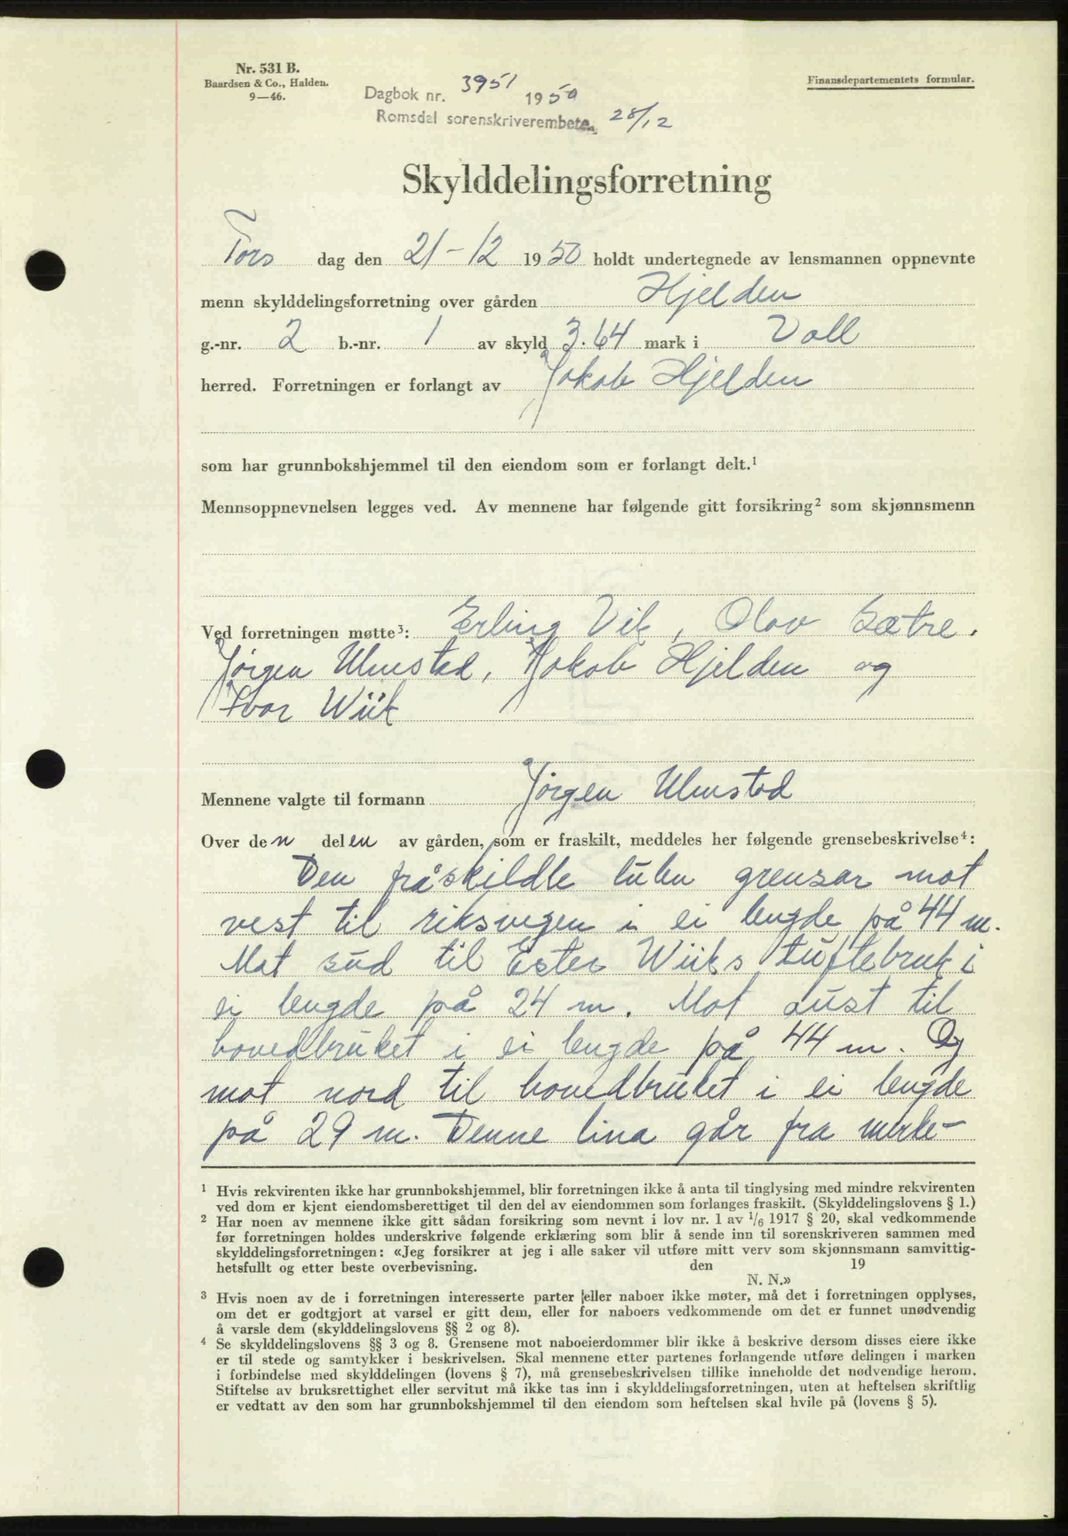 Nr. 531 B.
Baardsen & Co., Halden.
9—46.
Finansdepartementets formular.
Dagbok nr. 3951 1950
Romsdal sorenskriverembete, 28/12
Skylddelingsforretning
Tors dag den 21-12 1950 holdt undertegnede av lensmannen oppnevnte
menn skylddelingsforretning over gården Hjelden
g.-nr. 2 b.-nr. 1 av skyld 3.64 mark i Voll
herred. Forretningen er forlangt av Jakob Hjelden
som har grunnbokshjemmel til den eiendom som er forlangt delt.¹
Mennsoppnevnelsen legges ved. Av mennene har følgende gitt forsikring² som skjønnsmenn
Ved forretningen møtte³: Erling Vik, Olav Sætre.
Jørgen Ulmstad, Jakob Hjelden og
Ivar Wiik
Mennene valgte til formann Jørgen Ulmstad
Over den delen av gården, som er fraskilt, meddeles her følgende grensebeskrivelse⁴:
Den fråskildte luten grensar mot
vest til riksvegen i ei lengde på 44 m.
Mot sud til Ester Wiiks tuftebruk i
ei lengde på 24 m. Mot aust til
hovedbruket i ei lengde på 44 m. Og
mot nord til hovedbruket i ei lengde
på 29 m. Denne lina går fra merke-
¹ Hvis rekvirenten ikke har grunnbokshjemmel, blir forretningen ikke å anta til tinglysing med mindre rekvirenten
ved dom er kjent eiendomsberettiget til den del av eiendommen som forlanges fraskilt. (Skylddelingslovens § 1.)
² Har noen av mennene ikke gitt sådan forsikring som nevnt i lov nr. 1 av 1/6 1917 § 20, skal vedkommende
før forretningen holdes underskrive følgende erklæring som blir å sende inn til sorenskriveren sammen med
skylddelingsforretningen: «Jeg forsikrer at jeg i alle saker vil utføre mitt verv som skjønnsmann samvittig-
hetsfullt og etter beste overbevisning. den 19
N. N.»
³ Hvis noen av de i forretningen interesserte parter eller naboer ikke møter, må det i forretningen opplyses,
om det er godtgjort at varsel er gitt dem, eller for naboers vedkommende om det er funnet unødvendig
å varsle dem (skylddelingslovens §§ 2 og 8).
⁴ Se skylddelingslovens §§ 3 og 8. Grensene mot naboeierdommer blir ikke å beskrive dersom disses eiere ikke
er til stede og samtykker i beskrivelsen. Skal mennene etter partenes forlangende utføre delingen i marken
i forbindelse med skylddelingen (lovens § 7), må grensebeskrivelsen tillike inneholde det nødvendige herom.
Stiftelse av bruksrettighet eller servitut må ikke tas inn i skylddelingsforretningen, uten at heftelsen skriftlig
er vedtatt av den som har grunnbokshjemmel til den eiendom som heftelsen skal hvile på (lovens § 5).